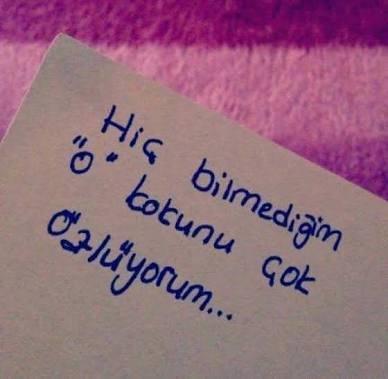 Hiç bilmediğim
"O" kokunu çok
Özlüyorum...